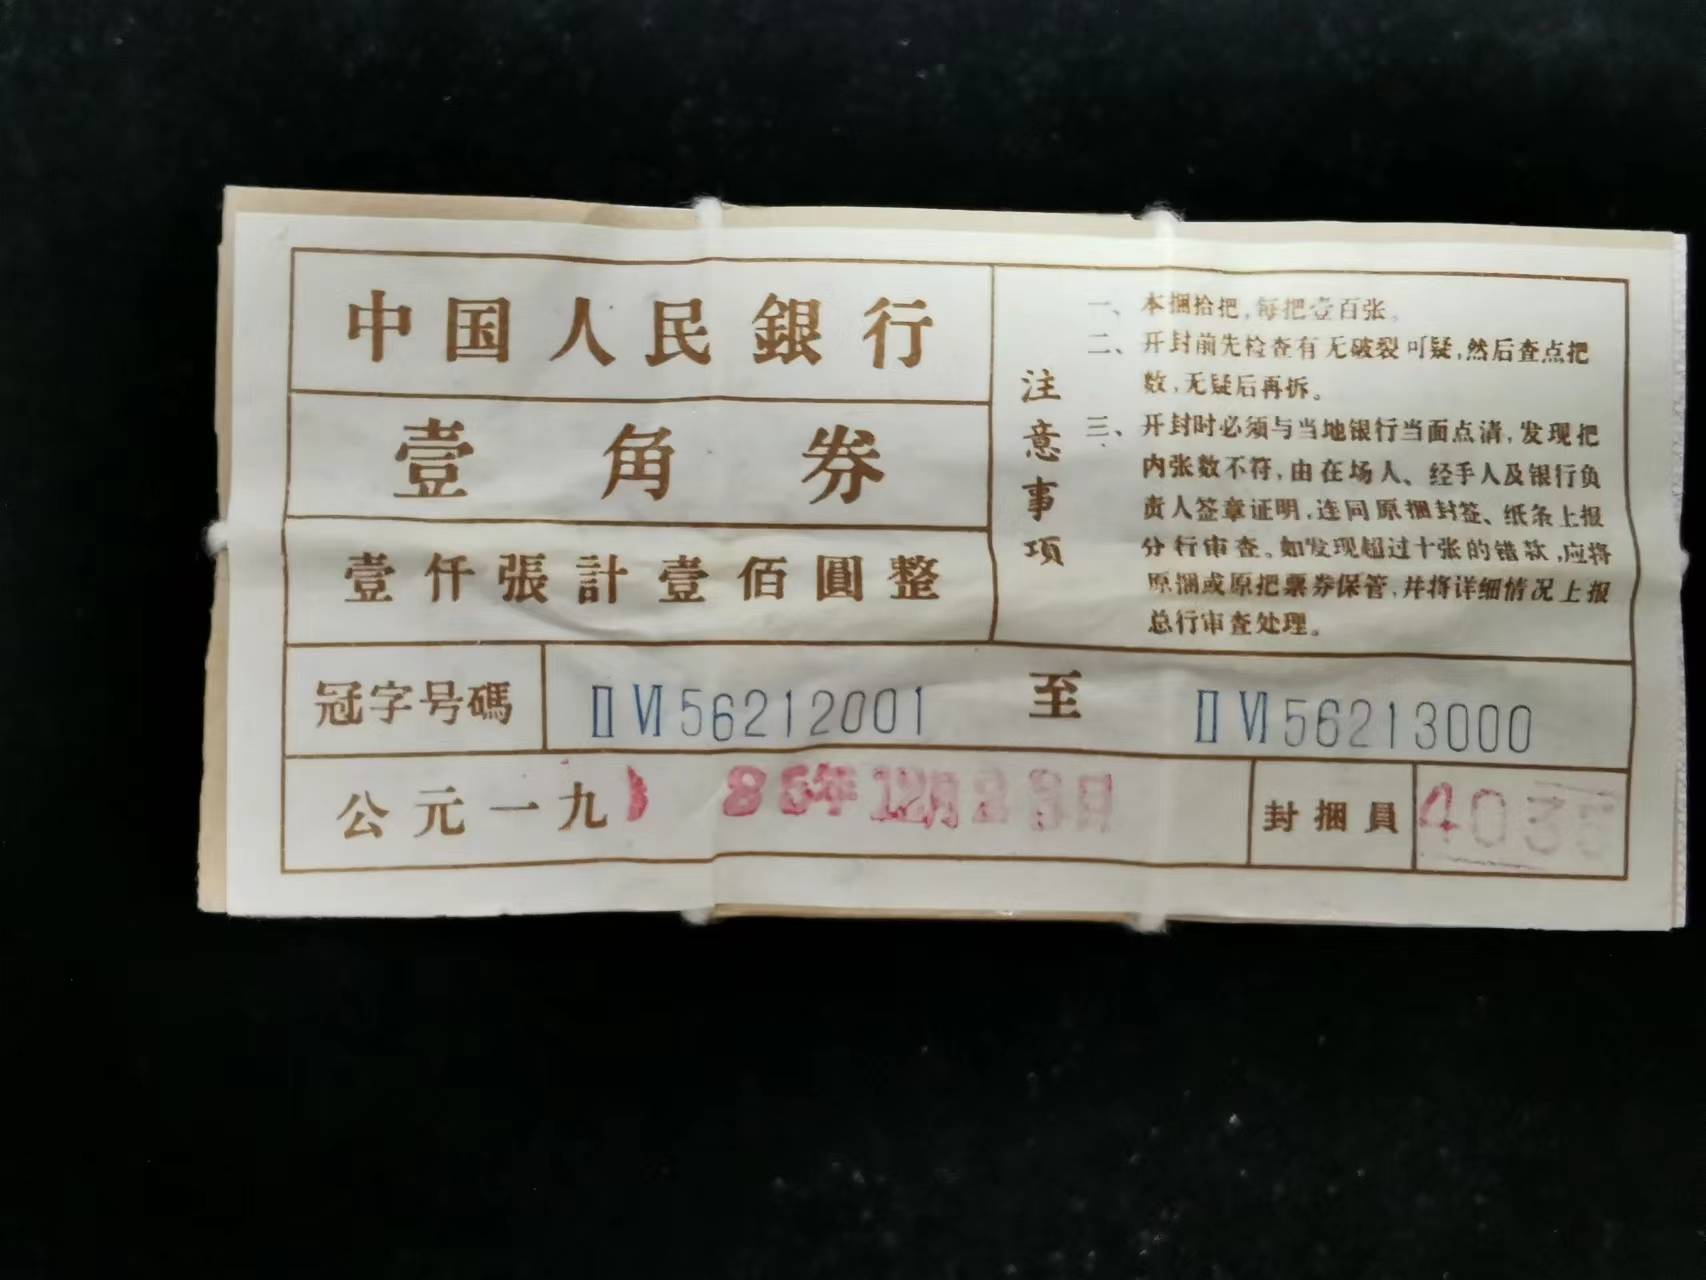 中国人民銀行
壹角券
壹仟張計壹佰圓整
注意事項
一、本捆拾把,每把壹百张。
二、开封前先检查有无破裂可疑,然后查点把
数,无疑后再拆。
三、开封时必须与当地银行当面点清,发现把
内张数不符,由在场人、经手人及银行负
责人签章证明,连同原捆封签、纸条上报
分行审查。如发现超过十张的错款,应将
原捆或原把票券保管,并将详细情况上报
总行审查处理。
冠字号碼 ⅡⅥ56212001 至 ⅡⅥ56213000
公元一九 85年12月23日 封捆員 403